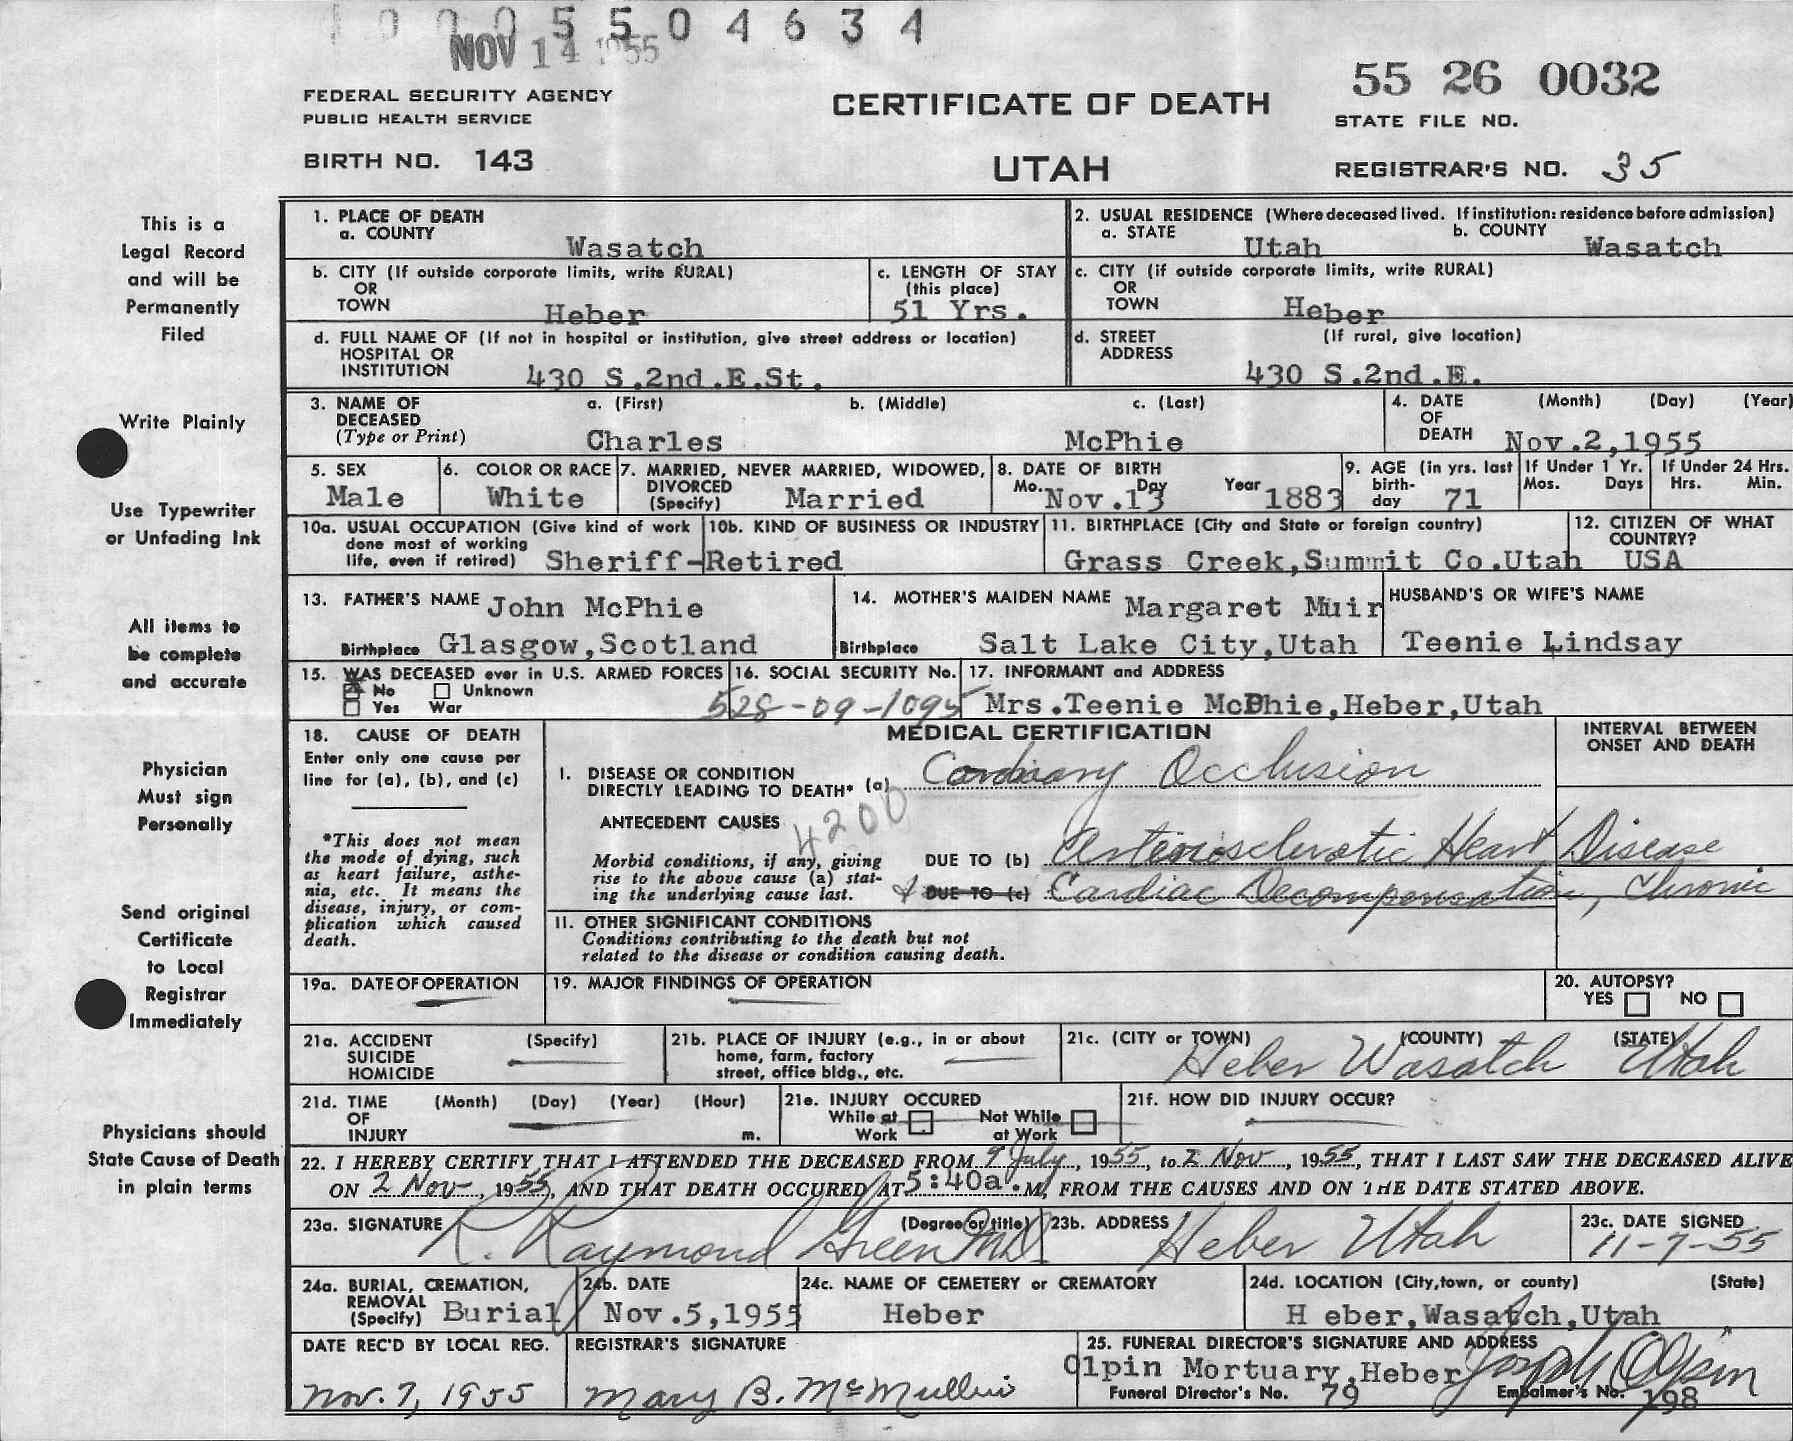 1000 5 5 0 4 6 3 4
NOV 14 1955
55 26 0032
FEDERAL SECURITY AGENCY
PUBLIC HEALTH SERVICE
CERTIFICATE OF DEATH
STATE FILE NO.
BIRTH NO. 143
UTAH
REGISTRAR'S NO. 35
This is a
Legal Record
and will be
Permanently
Filed
Write Plainly
Use Typewriter
or Unfading Ink
All items to
be complete
and accurate
Physician
Must sign
Personally
Send original
Certificate
to Local
Registrar
Immediately
Physicians should
State Cause of Death
in plain terms
1. PLACE OF DEATH
a. COUNTY
Wasatch
2. USUAL RESIDENCE (Where deceased lived. If institution: residence before admission)
a. STATE Utah b. COUNTY Wasatch
b. CITY (If outside corporate limits, write RURAL)
OR
TOWN Heber
c. LENGTH OF STAY
(this place)
51 Yrs.
c. CITY (if outside corporate limits, write RURAL)
OR
TOWN Heber
d. FULL NAME OF (If not in hospital or institution, give street address or location)
HOSPITAL OR
INSTITUTION 430 S.2nd.E.St.
d. STREET (If rural, give location)
ADDRESS
430 S.2nd.E.
3. NAME OF a. (First) b. (Middle) c. (Last)
DECEASED
(Type or Print) Charles McPhie
4. DATE (Month) (Day) (Year)
OF
DEATH Nov.2,1955
5. SEX
Male
6. COLOR OR RACE
White
7. MARRIED, NEVER MARRIED, WIDOWED,
DIVORCED
(Specify) Married
8. DATE OF BIRTH
Mo. Day Year
Nov.13 1883
9. AGE (in yrs. last
birth-
day 71
If Under 1 Yr.
Mos. Days
If Under 24 Hrs.
Hrs. Min.
10a. USUAL OCCUPATION (Give kind of work
done most of working
life, even if retired) Sheriff-Retired
10b. KIND OF BUSINESS OR INDUSTRY
11. BIRTHPLACE (City and State or foreign country)
Grass Creek,Summit Co.Utah
12. CITIZEN OF WHAT
COUNTRY?
USA
13. FATHER'S NAME John McPhie
Birthplace Glasgow,Scotland
14. MOTHER'S MAIDEN NAME Margaret Muir
Birthplace Salt Lake City,Utah
HUSBAND'S OR WIFE'S NAME
Teenie Lindsay
15. WAS DECEASED ever in U.S. ARMED FORCES
No Unknown
Yes War
16. SOCIAL SECURITY No.
528-09-1095
17. INFORMANT and ADDRESS
Mrs.Teenie McPhie,Heber,Utah
18. CAUSE OF DEATH
Enter only one cause per
line for (a), (b), and (c)
*This does not mean
the mode of dying, such
as heart failure, asthe-
nia, etc. It means the
disease, injury, or com-
plication which caused
death.
MEDICAL CERTIFICATION
INTERVAL BETWEEN
ONSET AND DEATH
I. DISEASE OR CONDITION
DIRECTLY LEADING TO DEATH* (a) Coronary Occlusion
ANTECEDENT CAUSES 4200
Morbid conditions, if any, giving
rise to the above cause (a) stat-
ing the underlying cause last.
DUE TO (b) Arteriosclerotic Heart Disease
& DUE TO (c) Cardiac Decompensation, Chronic
II. OTHER SIGNIFICANT CONDITIONS
Conditions contributing to the death but not
related to the disease or condition causing death.
19a. DATE OF OPERATION
19. MAJOR FINDINGS OF OPERATION
20. AUTOPSY?
YES NO
21a. ACCIDENT (Specify)
SUICIDE
HOMICIDE
21b. PLACE OF INJURY (e.g., in or about
home, farm, factory
street, office bldg., etc.
21c. (CITY or TOWN) (COUNTY) (STATE)
Heber Wasatch Utah
21d. TIME (Month) (Day) (Year) (Hour)
OF
INJURY m.
21e. INJURY OCCURED
While at Not While
Work at Work
21f. HOW DID INJURY OCCUR?
22. I HEREBY CERTIFY THAT I ATTENDED THE DECEASED FROM 9 July, 1955, to 2 Nov, 1955, THAT I LAST SAW THE DECEASED ALIVE
ON 2 Nov, 1955, AND THAT DEATH OCCURED AT 5:40a.M, FROM THE CAUSES AND ON THE DATE STATED ABOVE.
23a. SIGNATURE (Degree or title)
R. Raymond Green MD
23b. ADDRESS
Heber Utah
23c. DATE SIGNED
11-7-55
24a. BURIAL, CREMATION,
REMOVAL
(Specify) Burial
24b. DATE
Nov.5,1955
24c. NAME OF CEMETERY or CREMATORY
Heber
24d. LOCATION (City,town, or county) (State)
H eber,Wasatch,Utah
DATE REC'D BY LOCAL REG.
Nov. 7, 1955
REGISTRAR'S SIGNATURE
Mary B. McMullin
25. FUNERAL DIRECTOR'S SIGNATURE AND ADDRESS
Olpin Mortuary,Heber Joseph Olpin
Funeral Director's No. 79 Embalmer's No. 198